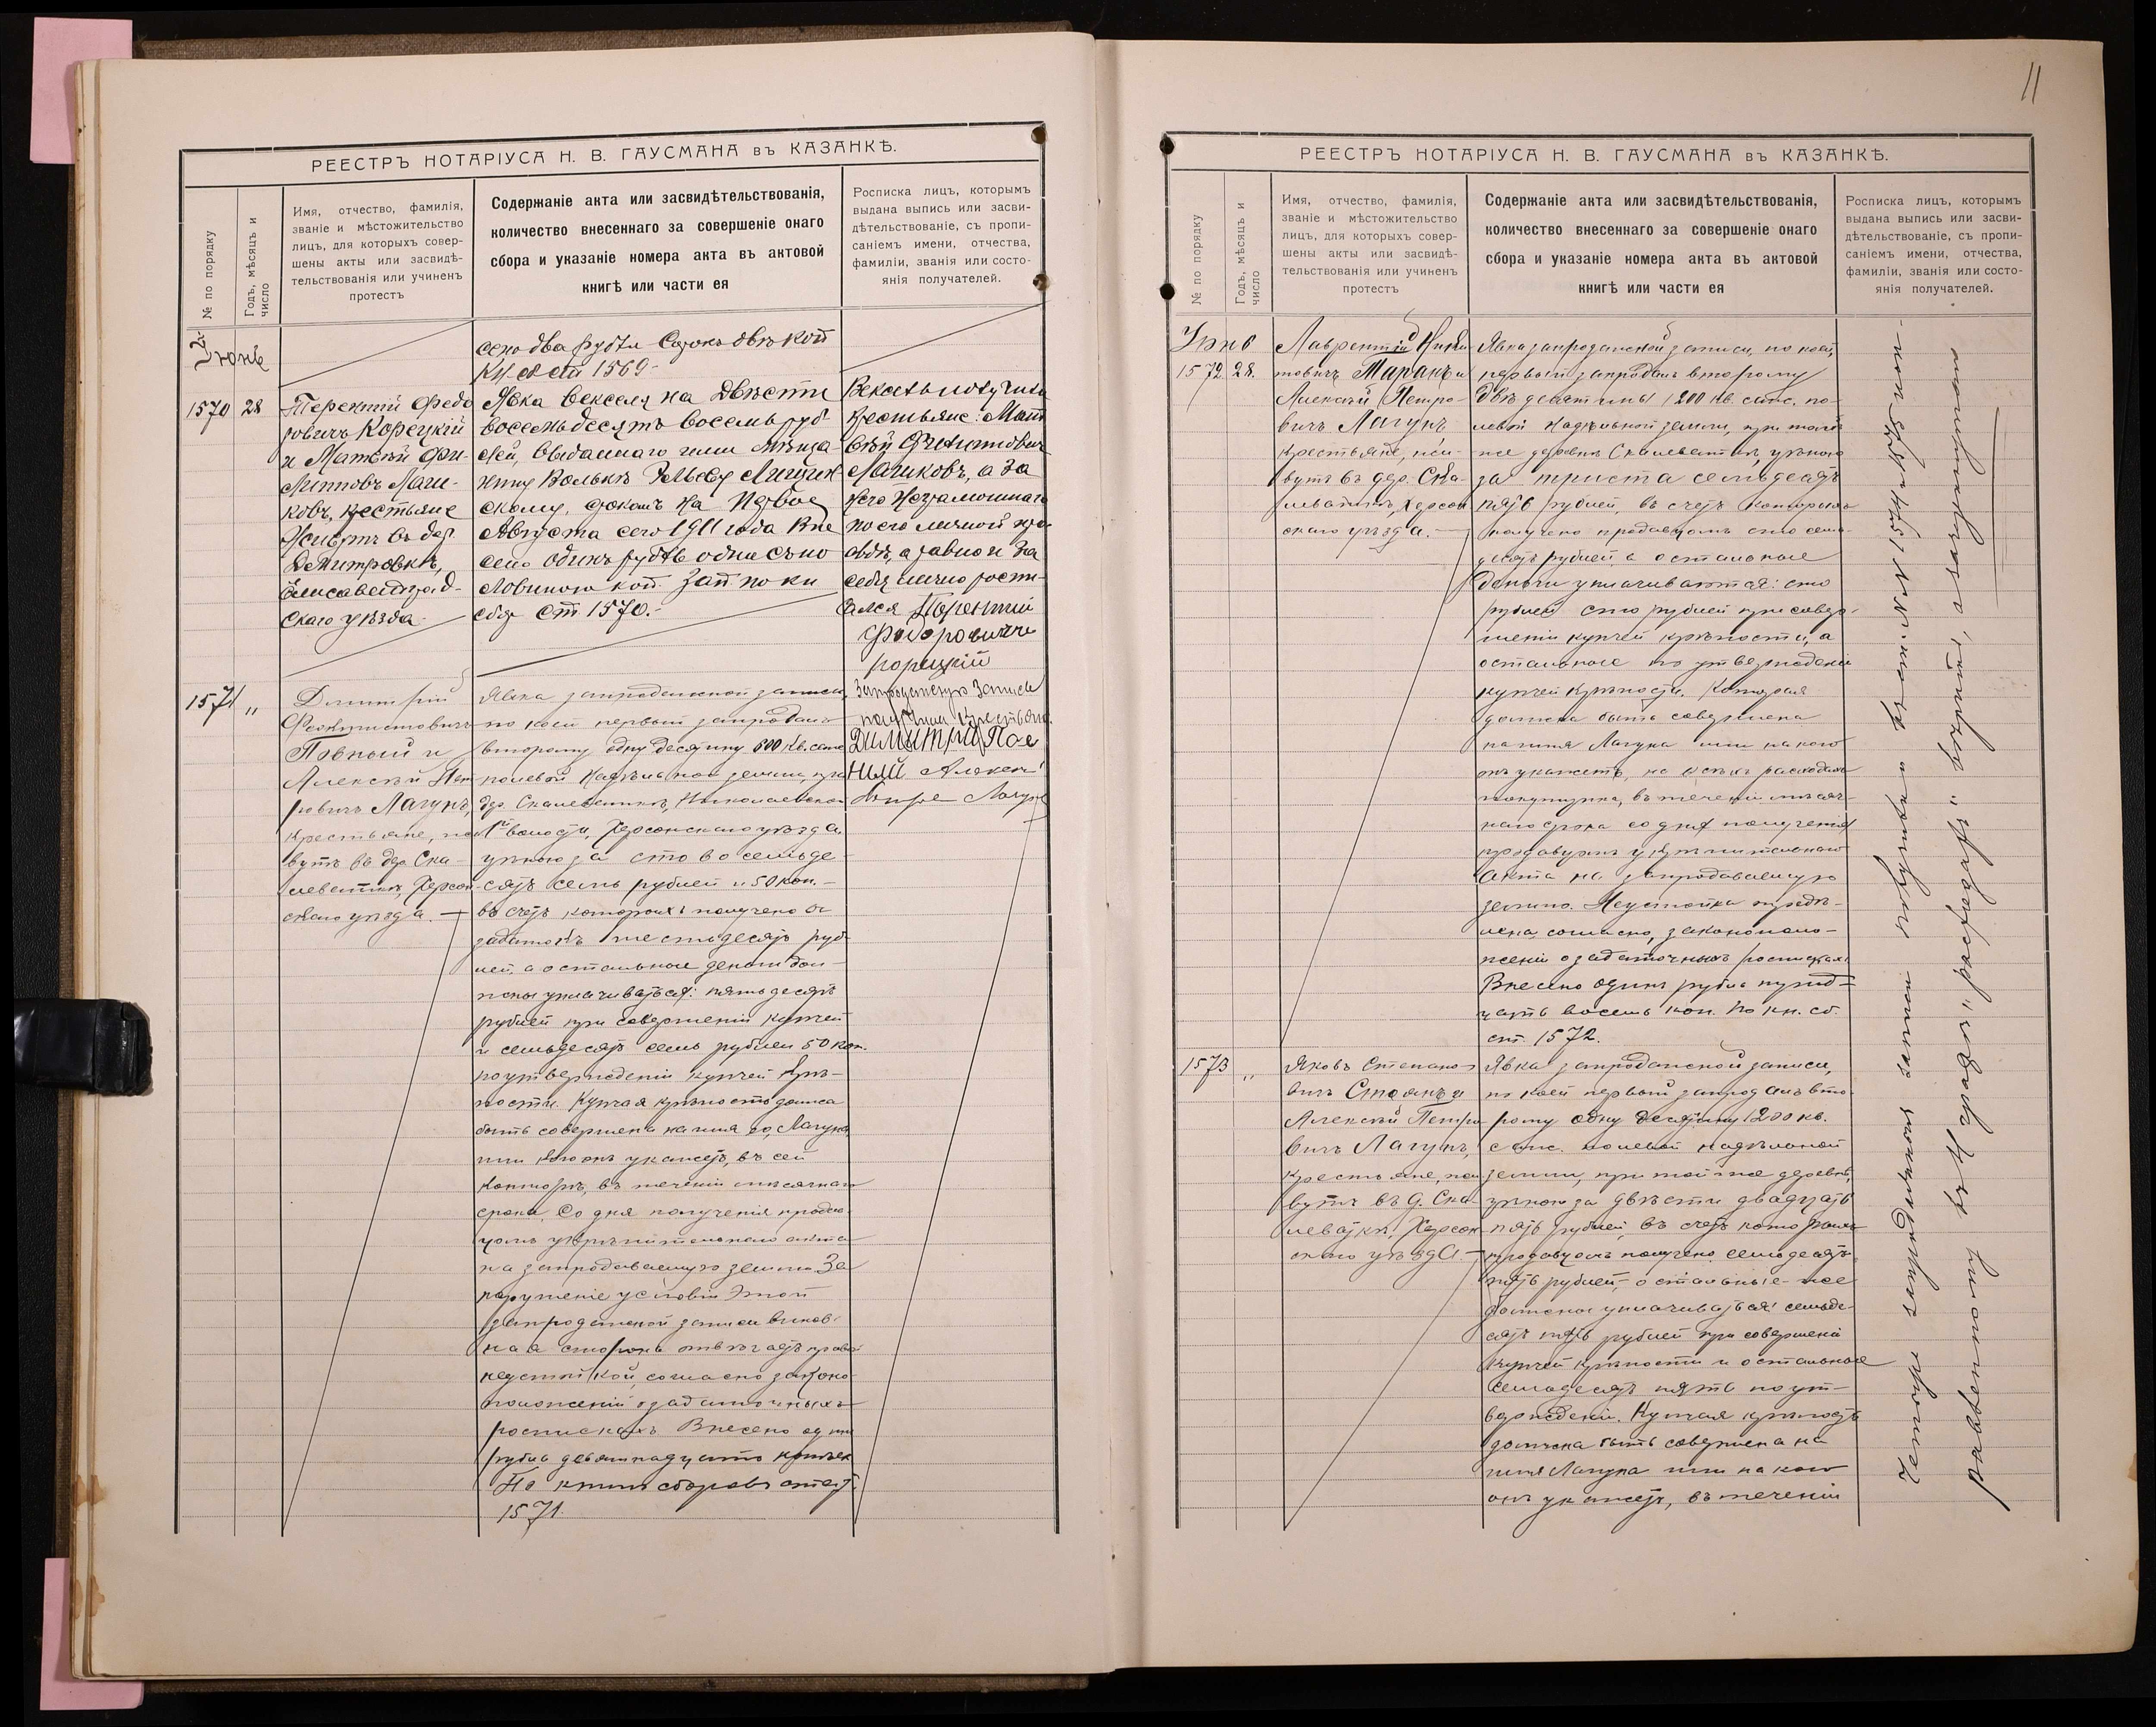 11
РЕЕСТРЪ НОТАРІУСА Н. В. ГАУСМАНА въ КАЗАНКѢ.
№ по порядку
Годъ, мѣсяцъ и
число
Имя, отчество, фамилія,
званіе и мѣстожительство
лицъ, для которыхъ совер-
шены акты или засвидѣ-
тельствованія или учиненъ
протестъ
Содержаніе акта или засвидѣтельствованія,
количество внесеннаго за совершеніе онаго
сбора и указаніе номера акта въ актовой
книгѣ или части ея
Росписка лицъ, которымъ
выдана выпись или засви-
дѣтельствованіе, съ пропи-
саніемъ имени, отчества,
фамиліи, званія или состо-
янія получателей.
Іюнь
сено два рубля Сорокъ двѣ коп
1569-
1570 28
Терентій Федо
ровичъ Корецкій
и Матвѣй Фи-
липповъ Маги-
ковъ, крестьяне
Живутъ въ дер.
Дмитровкѣ,
Елисаветград-
скаго уѣзда.
Явка векселя на Двѣсти
восемьдесятъ восемь руб-
лей, выданнаго ими мѣща-
нину
скому, срокомъ на Первое
Августа сего 1911 года Вне
сено одинъ рубль одна съ по
ловиною коп. Зап. по кн
сбор ст 1570.-
Вексель получили
Крестьяне: Мат
вѣй Филиповичъ
Магиковъ, а за
него неграмотнаго
по его личной про-
сьбѣ, а равно и за
себя лично роспи-
сался Терентій
Федоровичъ
Корецкій
1571 "
Димитрій
Феоктистовичъ
Повный и
Алексѣй Пет
ровичъ Лагунъ,
крестьяне, жи
вутъ въ дер. Ска-
леваткѣ, Херсон-
скаго уѣзда.
Явка запроданной записи,
по коей первый запродалъ
второму одну десятину 600 кв. саж
полевой Надѣльной земли, при
дер. Скалеваткѣ, Николаевской
1й волости, Херсонскаго уѣзда.
цѣною за сто восемьде-
сятъ семь рублей и 50 коп.-
въ счетъ которыхъ получено въ
задатокъ шестьдесятъ руб-
лей, а остальные деньги дол-
жны уплачиваться: пятьдесятъ
рублей при совершеніи купчей
и семьдесятъ семь рублей 50 коп.
по утвержденіи купчей крѣ-
пости. Купчая крѣпость должна
быть совершена на имя его, Лагуна,
или кого онъ укажетъ, въ сей
Конторѣ, въ теченіи мѣсячнаго
срока Со дня полученія продав-
цомъ укрѣпительнаго акта
на запродаваемую землю За
нарушеніе условій Этой
запроданной записи винов-
ная сторона отвѣчаетъ
неустойкой, согласно законо-
положеній о задаточныхъ
роспискахъ Внесено одинъ
рубль девятнадцать копѣекъ
По книгѣ сборовъ
1571.
Запроданную Запись
получили Крестьяне:
Димитрій По-
ный Алексѣй
Лагунъ
РЕЕСТРЪ НОТАРІУСА Н. В. ГАУСМАНА въ КАЗАНКѢ.
№ по порядку
Годъ, мѣсяцъ и
число
Имя, отчество, фамилія,
званіе и мѣстожительство
лицъ, для которыхъ совер-
шены акты или засвидѣ-
тельствованія или учиненъ
протестъ
Содержаніе акта или засвидѣтельствованія,
количество внесеннаго за совершеніе онаго
сбора и указаніе номера акта въ актовой
книгѣ или части ея
Росписка лицъ, которымъ
выдана выпись или засви-
дѣтельствованіе, съ пропи-
саніемъ имени, отчества,
фамиліи, званія или состо-
янія получателей.
Іюнь
1572 28.
Лаврентій Ники
товичъ Таранъ и
Алексѣй Петро-
вичъ Лагунъ,
Крестьяне, жи-
вутъ въ дер. Ска-
леваткѣ, Херсон
скаго уѣзда.
Явка запроданной записи, по коей,
первый запродалъ второму
Двѣ десятины 1200 кв. саж. по-
левой надѣльной земли, при той
же деревнѣ Скалеваткѣ, цѣною
за триста семьдесятъ
пять рублей, въ счетъ которыхъ
получено продавцомъ сто семь-
десятъ рублей, а остальные
деньги уплачиваются: сто
рублей сто рублей при совер-
шеніи купчей крѣпости, а
остальные по утвержденіи
купчей Крѣпости, Которая
должна быть совершена
на имя Лагуна или на кого
онъ укажетъ, расходамъ
покупщика, въ теченіи мѣсяч-
наго срока со дня полученія
продавцомъ укрѣпительнаго
Акта на запродаваемую
землю. Неустойка опредѣ-
лена, согласно, законополо-
женій о задаточныхъ роспискахъ
Внесено одинъ рубль тринад-
цать восемь коп. По кн. сб.
ст. 1572.
1573 "
Яковъ Степано-
вичъ Стоянъ и
Алексѣй Петро
вичъ Лагунъ,
Крестьяне, жи
вутъ въ д. Ска-
леваткѣ, Херсон
скаго уѣзда
Явка запроданной записи,
по коей первый запродалъ вто-
рому одну десятину 1200 кв.
саж. полевой надѣльной
земли, при той же деревнѣ,
цѣною за двѣсти двадцать
пять рублей, въ счетъ которыхъ
продавцомъ получено семьдесятъ
пять рублей, остальные же
должны уплачиваться: семьде-
сятъ пять рублей при совершеніи
купчей крѣпости и остальные
семьдесятъ пять по ут-
вержденіи. Купчая крѣпость
должна быть совершена на
имя Лагуна или на кого
онъ укажетъ, въ теченіи
Четыре запроданныя записи получены